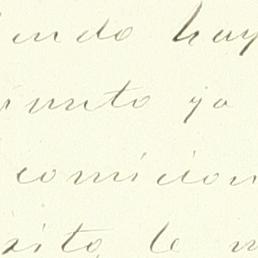 endo hay
unto ya
comicion
xito le